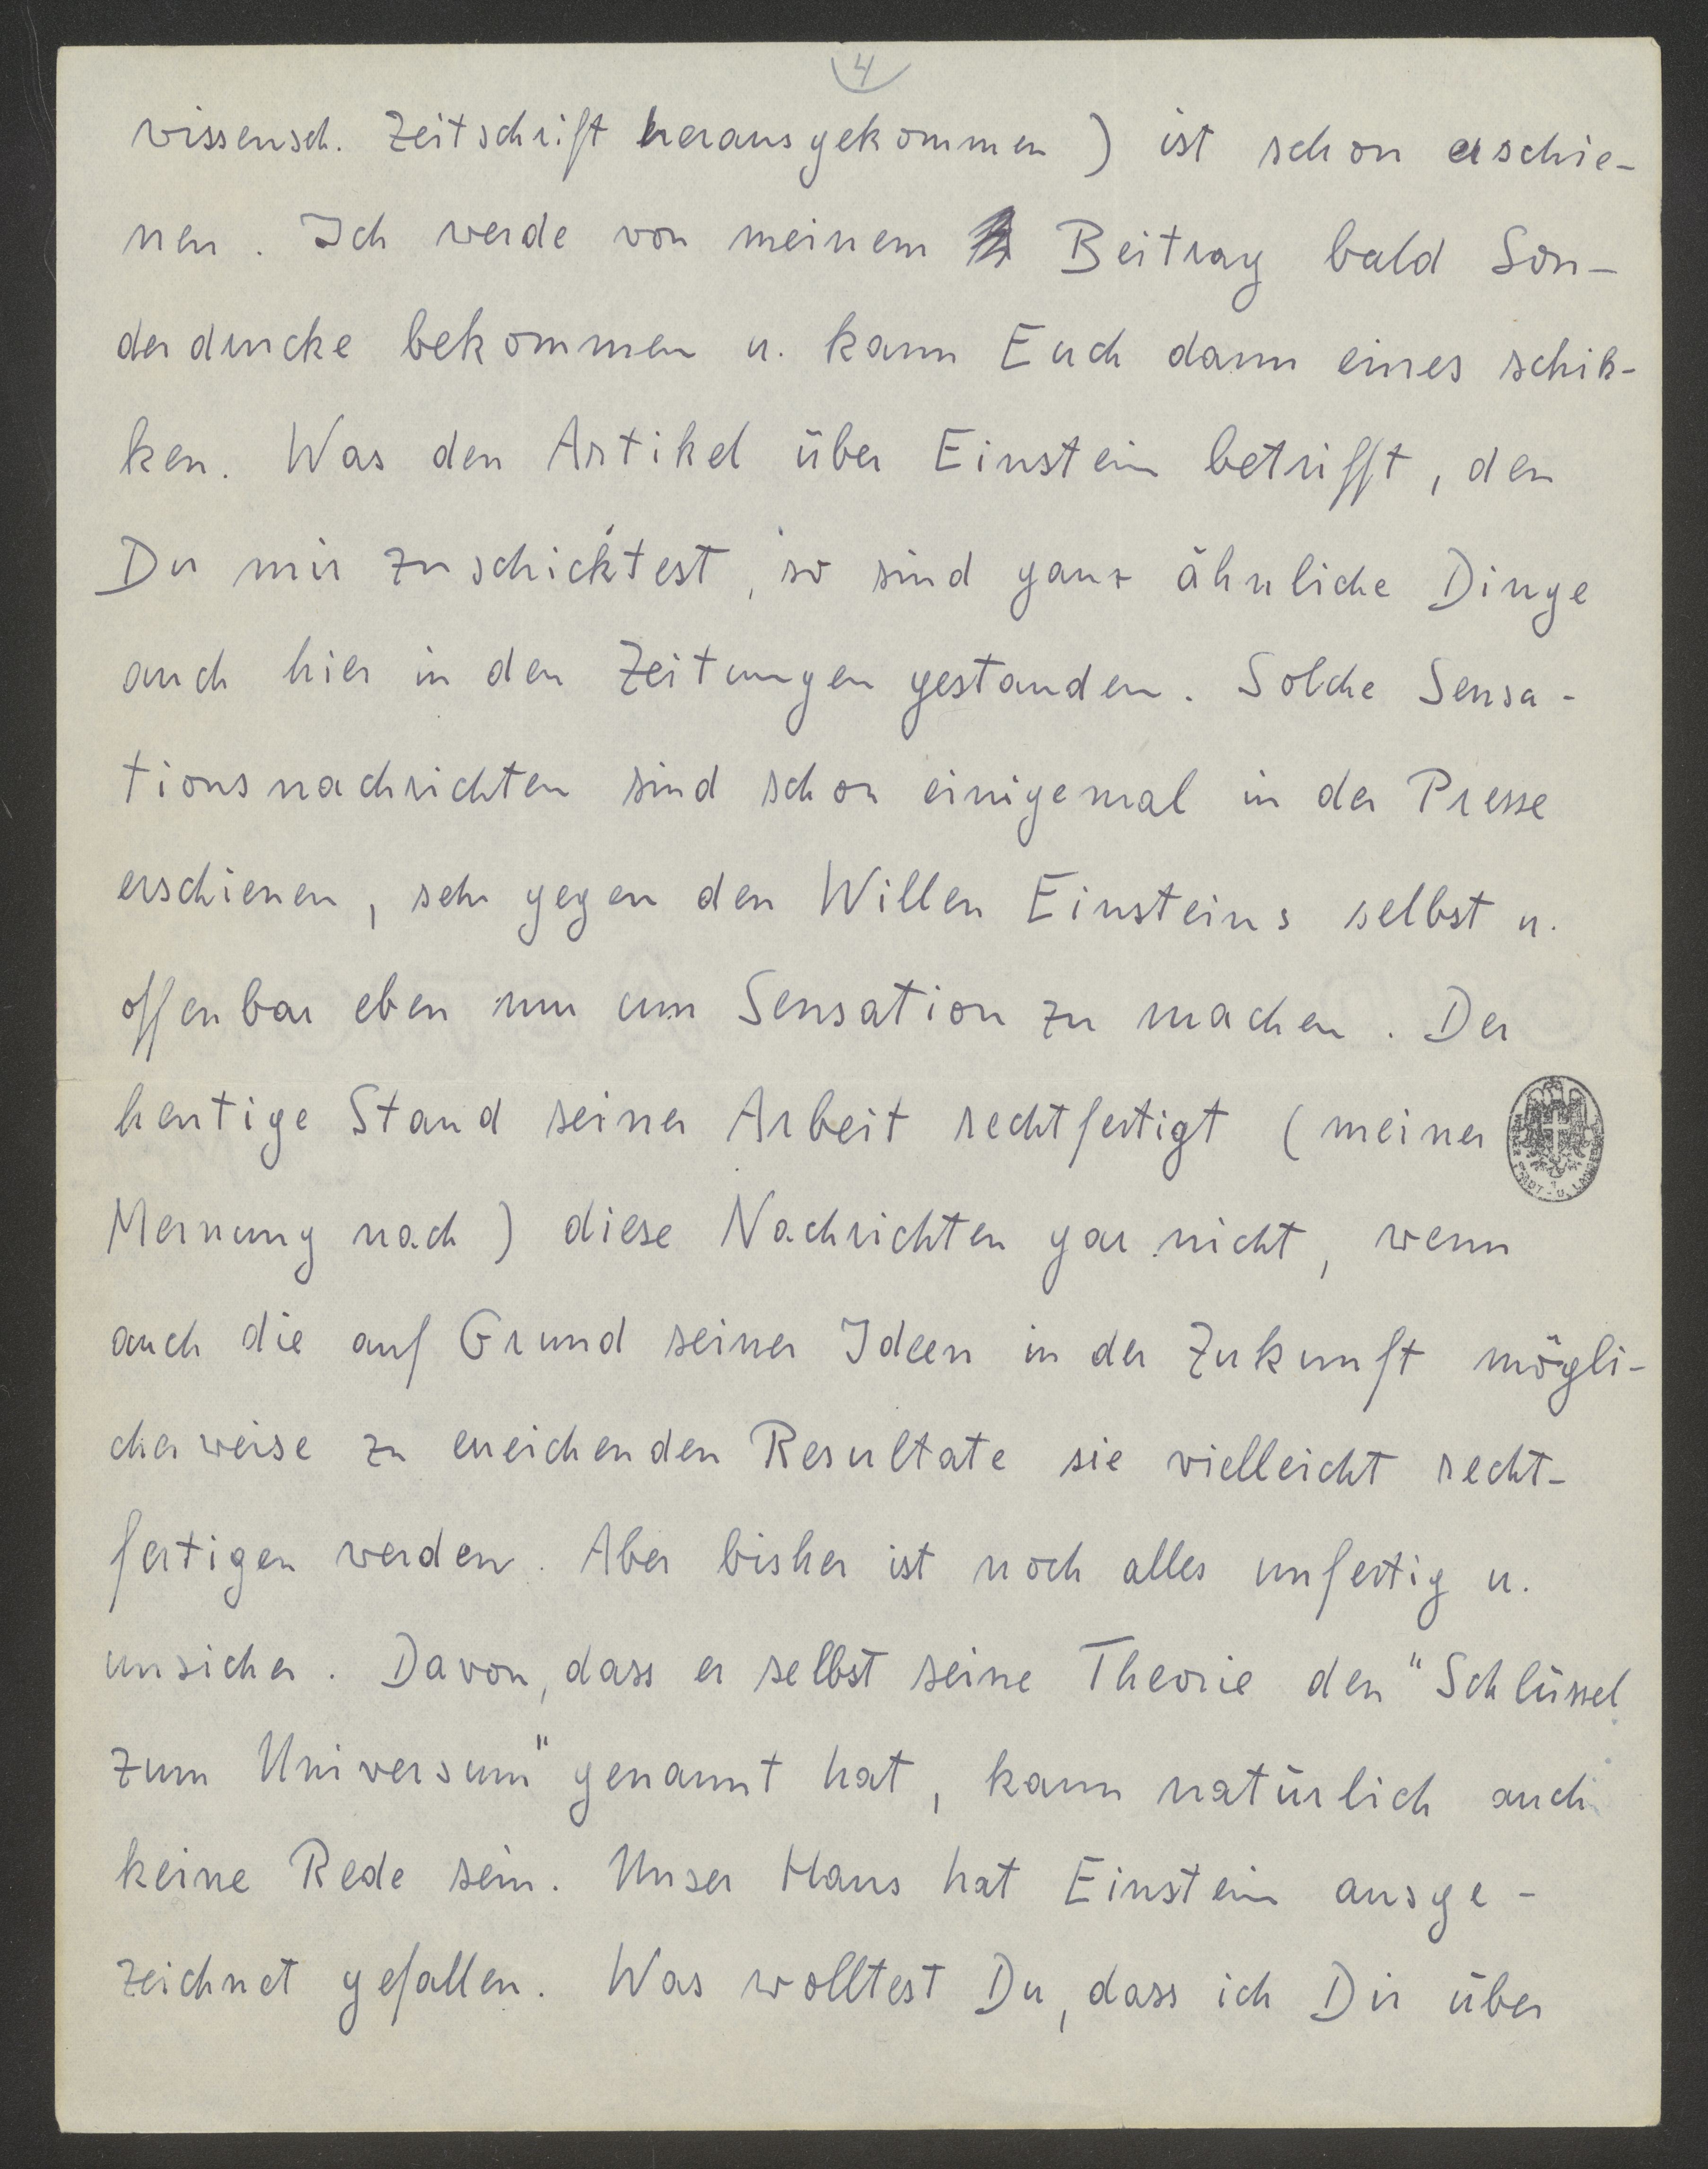 4
wissensch. Zeitschrift herausgekommen) ist schon erschie-
nen. Ich werde von meinem Beitrag bald Son-
derdrucke bekommen u. kann Euch dann eines schik-
ken. Was den Artikel über Einstein betrifft, den
Du mir zuschicktest, so sind ganz ähnliche Dinge
auch hier in den Zeitungen gestanden. Solche Sensa-
tionsnachrichten sind schon einigemal in der Presse
erschienen, sehr gegen den Willen Einsteins selbst u.
offenbar eben nur um Sensation zu machen. Der
heutige Stand seiner Arbeit rechtfertigt (meiner
Meinung nach) diese Nachrichten gar nicht, wenn
auch die auf Grund seiner Ideen in der Zukunft mögli-
cherweise zu erreichenden Resultate sie vielleicht recht-
fertigen werden. Aber bisher ist noch alles unfertig u.
unsicher. Davon, dass er selbst seine Theorie den "Schlüssel
zum Universum" genannt hat, kann natürlich auch
keine Rede sein. Unser Haus hat Einstein ausge-
zeichnet gefallen. Was wolltest Du, dass ich Dir über